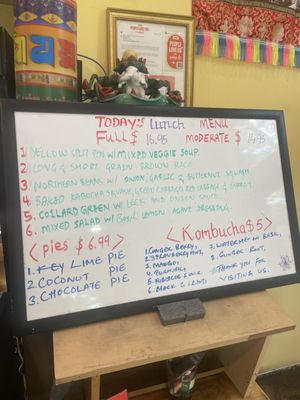 PEOPLE LOVE US
TODAY'S Lunch MENU
FULL $ 16.95 MODERATE $ 14.95
1 YELLOW SPLIT PEA W/ MIXED VEGGIE SOUP.
2 LONG & SHORT GRAIN BROWN RICE
3 NORTHERN BEANS W/ ONION, GARLIC & BUTTERNUT SQUASH
4 BAKED KABOCHA SQUASH, GREEN CABBAGE, RED CABBAGE & CARROT
5. COLLARD GREEN W/ LEEK AND ONION SAUCE
6. MIXED SALAD W/ BASIL LEMON AGAVE DRESSING.
<pies $ 6.99>
1. KEY LIME PIE
2 COCONUT PIE
3. CHOCOLATE PIE
<Kombucha $5>
1. GINGER BERRY,
2. STRAWBERRY MINT,
3. MANGO,
4. TURMERIC,
5. HIBISCUS
6. BLACK C
7. WATERMELON BASIL,
8. GINGER ROOT,
THANK YOU FOR
VISITING US.